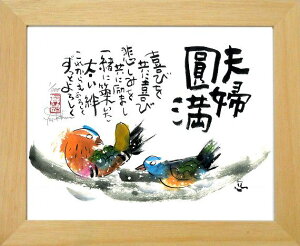 夫婦
圓満
喜びを
共に喜び
悲しみを
共に励まし
一緒に築いた
太い絆
これからもふたり
ずっとよろしく